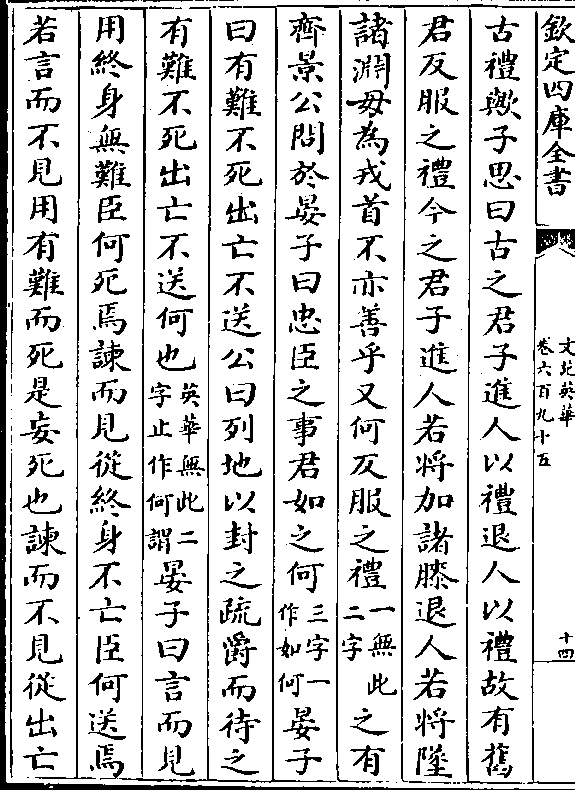 欽定四庫全書
文苑英華
卷六百九十五
十四
古禮歟子思曰古之君子進人以禮退人以禮故有舊
君反服之禮今之君子進人若將加諸膝退人若將隆
諸淵毋為戎首不亦善乎又何反服之禮一無此二字之有
齊景公問於晏子曰忠臣之事君如之何三字一作如何晏子
曰有難不死出亡不送公曰列地以封之疏爵而待之
有難不死出亡不送何也英華無此二字止作何謂晏子曰言而見
用終身無難臣何死焉諫而見從終身不亡臣何送焉
若言而不見用有難而死是妄死也諫而不見從出亡